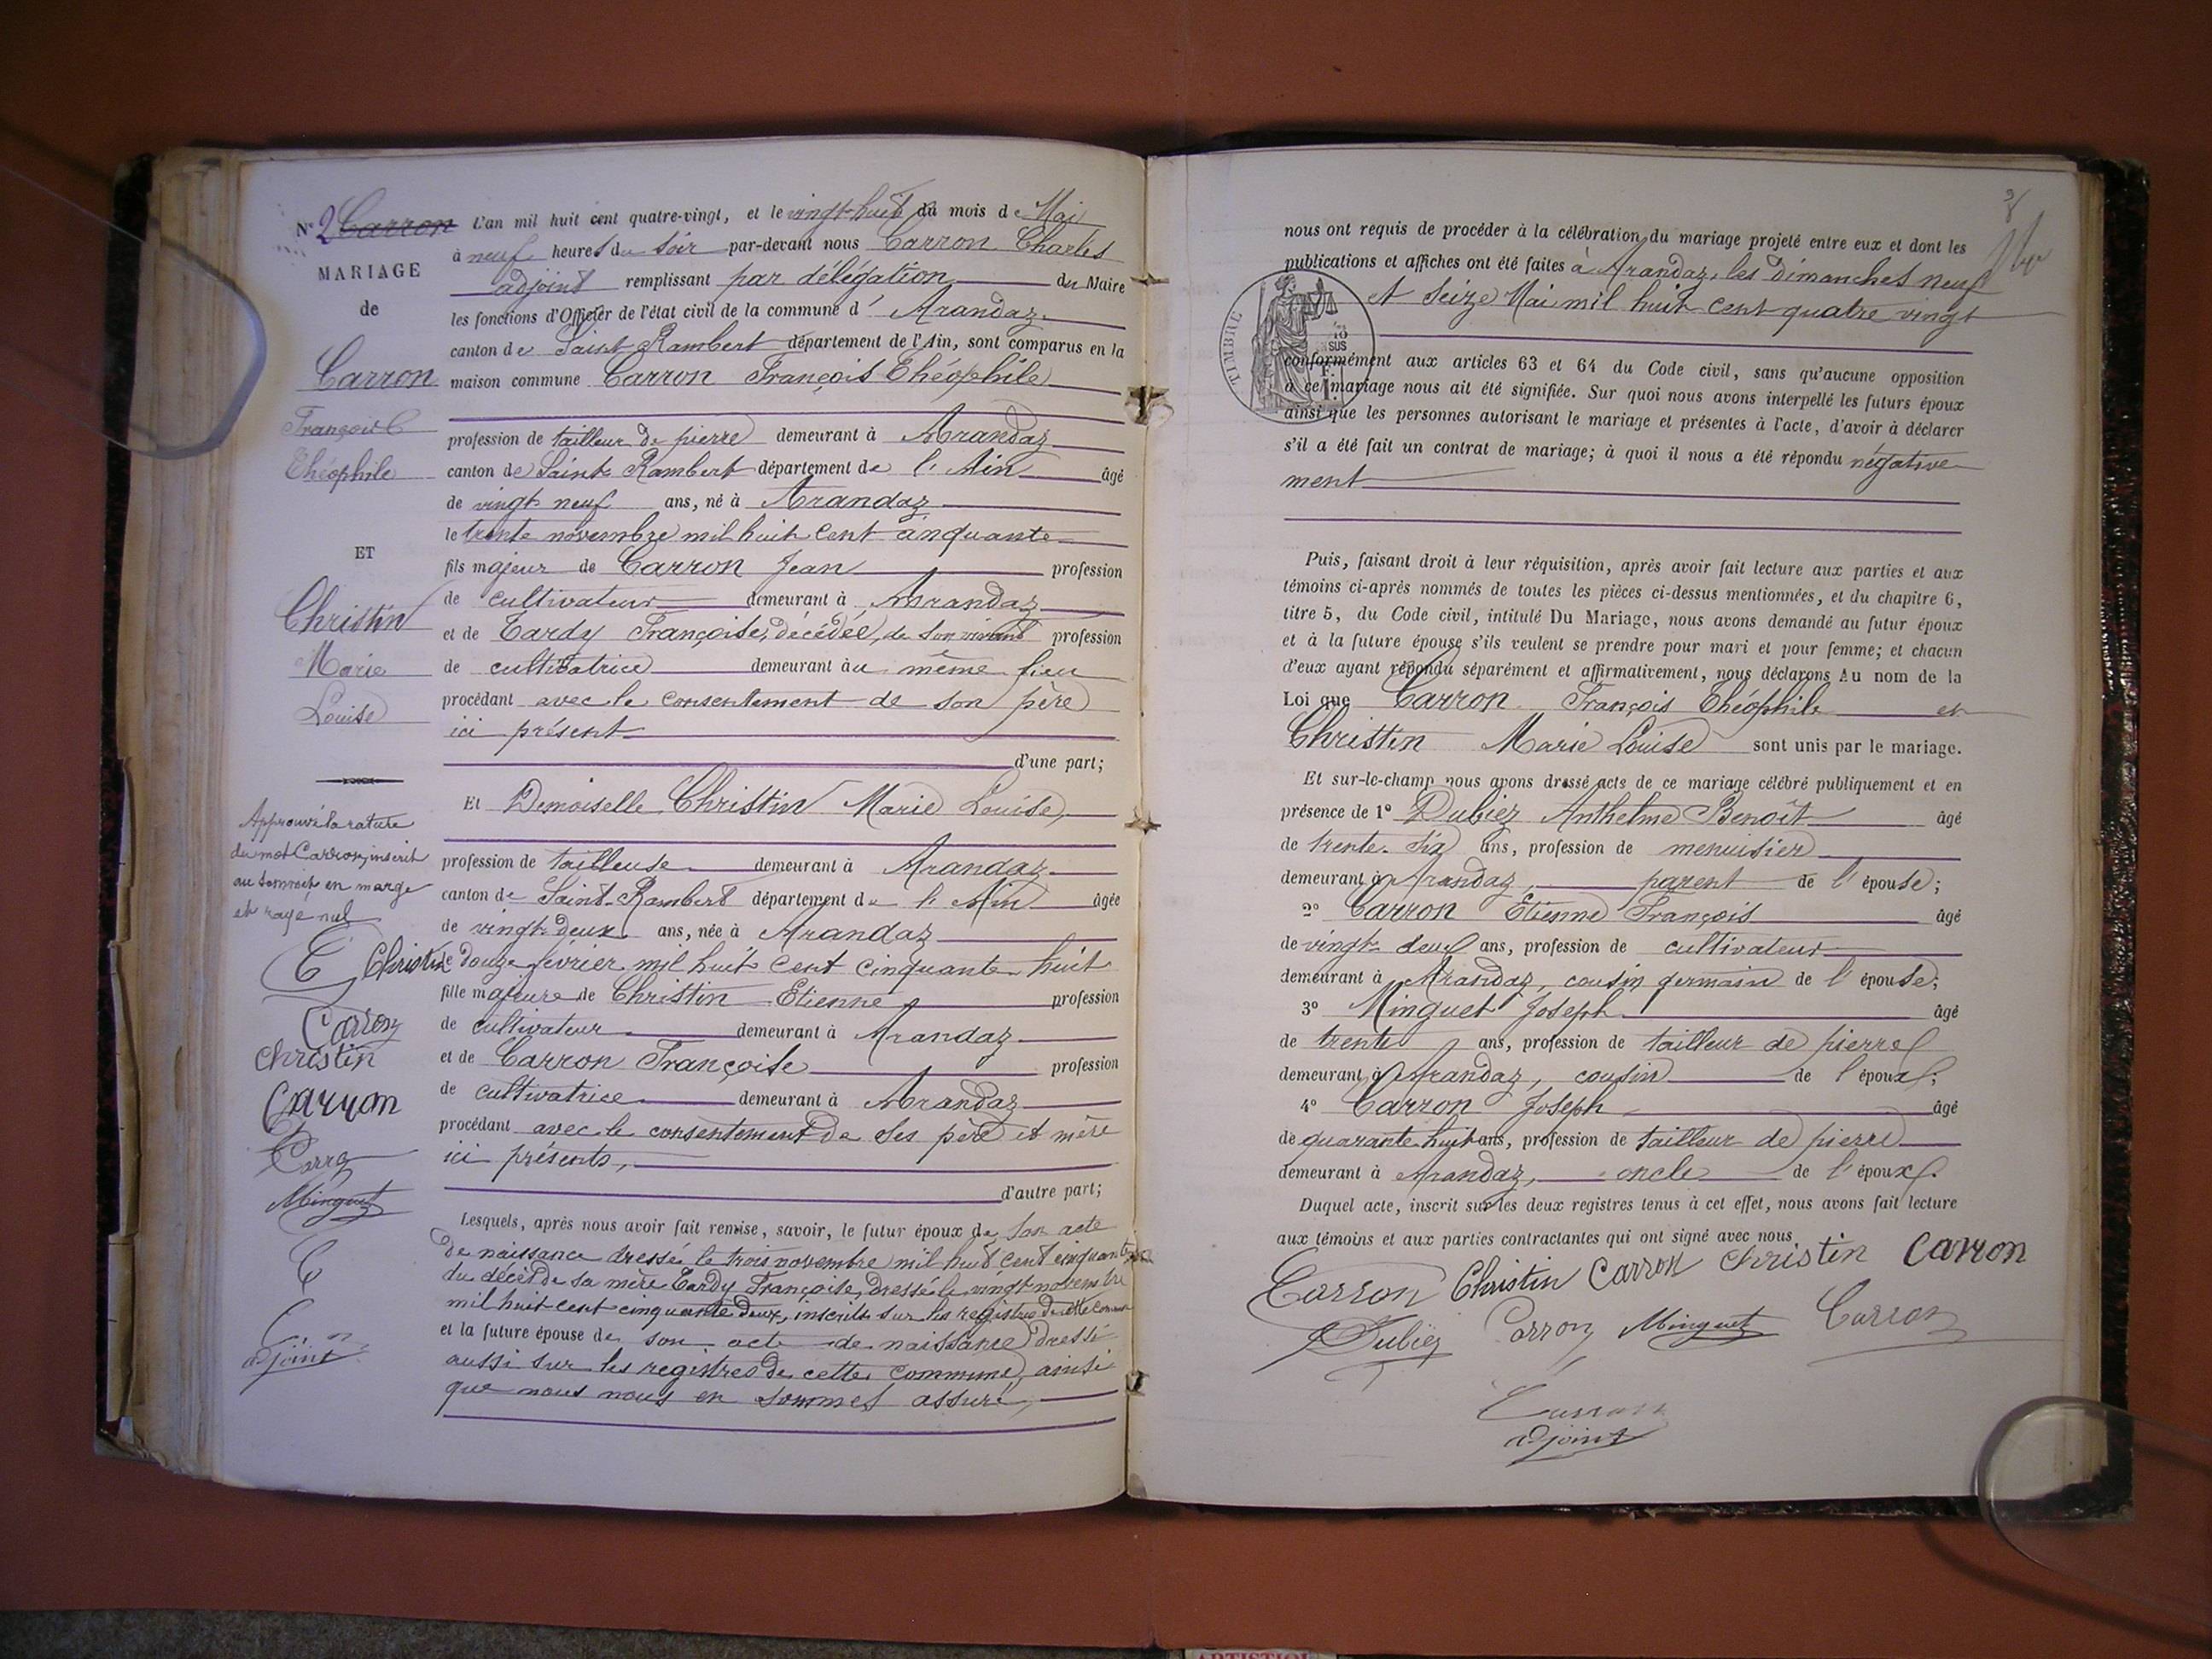 N° 2 Carron
MARIAGE
de
Carron
François
Théophile
ET
Christin
Marie
Louise
Approuvé la rature
du mot Carron, inscrit
au sommet en marge
et rayé nul
C Christin
Carron
Christin
Carron
Carron
Minguet
C
adjoint
L'an mil huit cent quatre-vingt, et le vingt-huit du mois de Mai
à neuf heures du soir par-devant nous Carron Charles
adjoint remplissant par délégation du Maire
les fonctions d'Officier de l'état civil de la commune d' Arandaz
canton de Saint Rambert département de l'Ain, sont comparus en la
maison commune Carron François Théophile
profession de tailleur de pierre demeurant à Arandaz
canton de Saint Rambert département de l'Ain âgé
de vingt neuf ans, né à Arandaz
le trente novembre mil huit cent cinquante
fils majeur de Carron Jean profession
de cultivateur demeurant à Arandaz
et de Tardy Françoise, décédée, de son vivant profession
de cultivatrice demeurant au même lieu
procédant avec le consentement de son père
ici présent
d'une part;
Et Demoiselle Christin Marie Louise,
profession de tailleuse demeurant à Arandaz
canton de Saint-Rambert département de l'Ain âgée
de vingt deux ans, née à Arandaz
le douze février mil huit cent cinquante huit
fille majeure de Christin Etienne profession
de cultivateur demeurant à Arandaz
et de Carron Françoise profession
de cultivatrice demeurant à Arandaz
procédant avec le consentement de ses père et mère
ici présents,
d'autre part;
Lesquels, après nous avoir fait remise, savoir, le futur époux de son acte
de naissance dressé le trois novembre mil huit cent cinquante
du décès de sa mère Tardy Françoise, dressé le vingt novembre
mil huit cent cinquante deux, inscrits sur les registres de cette commune
et la future épouse de son acte de naissance dressé
aussi sur les registres de cette commune, ainsi
que nous nous en sommes assuré,
nous ont requis de procéder à la célébration du mariage projeté entre eux et dont les
publications et affiches ont été faites à Arandaz, les dimanches neuf
et seize Mai mil huit cent quatre vingt
TIMBRE
SUS
conformément aux articles 63 et 64 du Code civil, sans qu'aucune opposition
à ce mariage nous ait été signifiée. Sur quoi nous avons interpellé les futurs époux
ainsi que les personnes autorisant le mariage et présentes à l'acte, d'avoir à déclarer
s'il a été fait un contrat de mariage; à quoi il nous a été répondu négative
ment
Puis, faisant droit à leur réquisition, après avoir fait lecture aux parties et aux
témoins ci-après nommés de toutes les pièces ci-dessus mentionnées, et du chapitre 6,
titre 5, du Code civil, intitulé Du Mariage, nous avons demandé au futur époux
et à la future épouse s'ils veulent se prendre pour mari et pour femme; et chacun
d'eux ayant répondu séparément et affirmativement, nous déclarons Au nom de la
Loi que Carron François Théophile et
Christin Marie Louise sont unis par le mariage.
Et sur-le-champ nous avons dressé acte de ce mariage célébré publiquement et en
présence de 1° Dubiez Anthelme Benoît âgé
de trente six ans, profession de menuisier
demeurant à Arandaz, parent de l'épouse;
2° Carron Etienne François âgé
de vingt deux ans, profession de cultivateur
demeurant à Arandaz, cousin germain de l'épouse;
3° Minguet Joseph âgé
de trente ans, profession de tailleur de pierre
demeurant à Arandaz, cousin de l'époux;
4° Carron Joseph âgé
de quarante huit ans, profession de tailleur de pierre
demeurant à Arandaz, oncle de l'époux.
Duquel acte, inscrit sur les deux registres tenus à cet effet, nous avons fait lecture
aux témoins et aux parties contractantes qui ont signé avec nous
Carron Christin Carron Christin Carron
Dubiez Carron Minguet Carron
Carron
adjoint